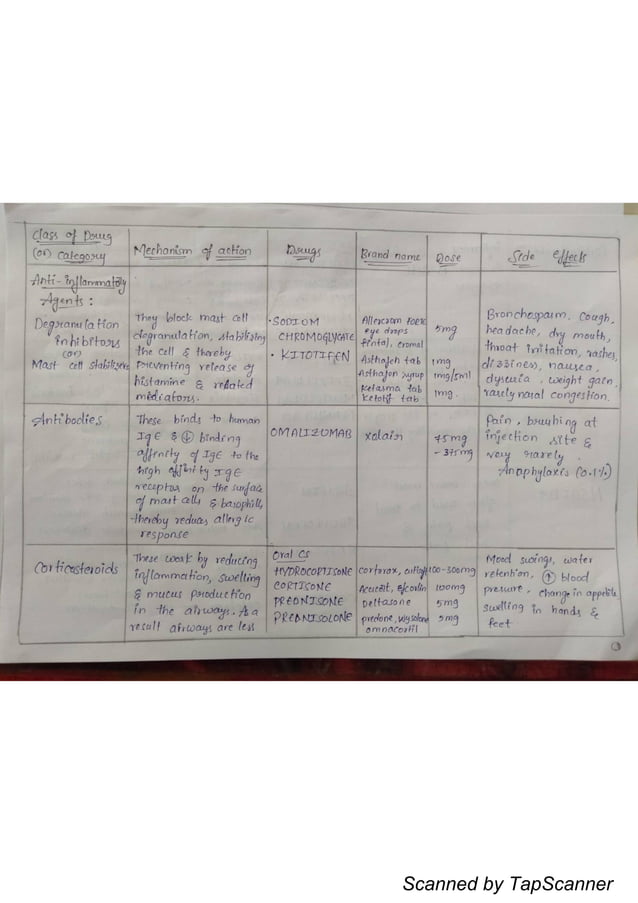 Class of Drug
(or) Category
Mechanism of action
Drugs
Brand name
Dose
Side effects
Anti-inflammatory
Agents :
Degranulation
inhibitors
(or)
Mast cell stabilizers
They block mast cell
degranulation, stabilizing
the cell & thereby
preventing release of
histamine & related
mediators.
• SODIUM
CHROMOGLYCATE
• KITOTIFEN
eye drops
fintal, cromal
Asthafen tab
Asthafen syrup
Ketasma tab
Ketotif tab
5mg
1mg
1mg/5ml
1mg.
Bronchospasm, Cough,
headache, dry mouth,
throat irritation, rashes,
dizziness, nausea,
dysuria, weight gain,
rarely nasal congestion.
Antibodies
These binds to human
IgE & ↓ binding
affinity of IgE to the
high affinity IgE
receptor on the surface
of mast cells & basophills
thereby reduces allergic
response
OMALIZUMAB
xolair
75mg
- 375mg
Pain, brushing at
injection site &
very rarely.
Anaphylaxis (0.1%)
Corticosteroids
These work by reducing
inflammation, swelling
& mucus production
in the airways. As a
result airways are less
Oral CS
HYDROCORTISONE
CORTISONE
PREDNISONE
PREDNISOLONE
Deltasone
predone, wysolone
omnacortil
100-300mg
100mg
5mg
5mg
Mood swings, water
retention, ↑ blood
pressure, change in appetite,
swelling in hands &
feet
Scanned by TapScanner